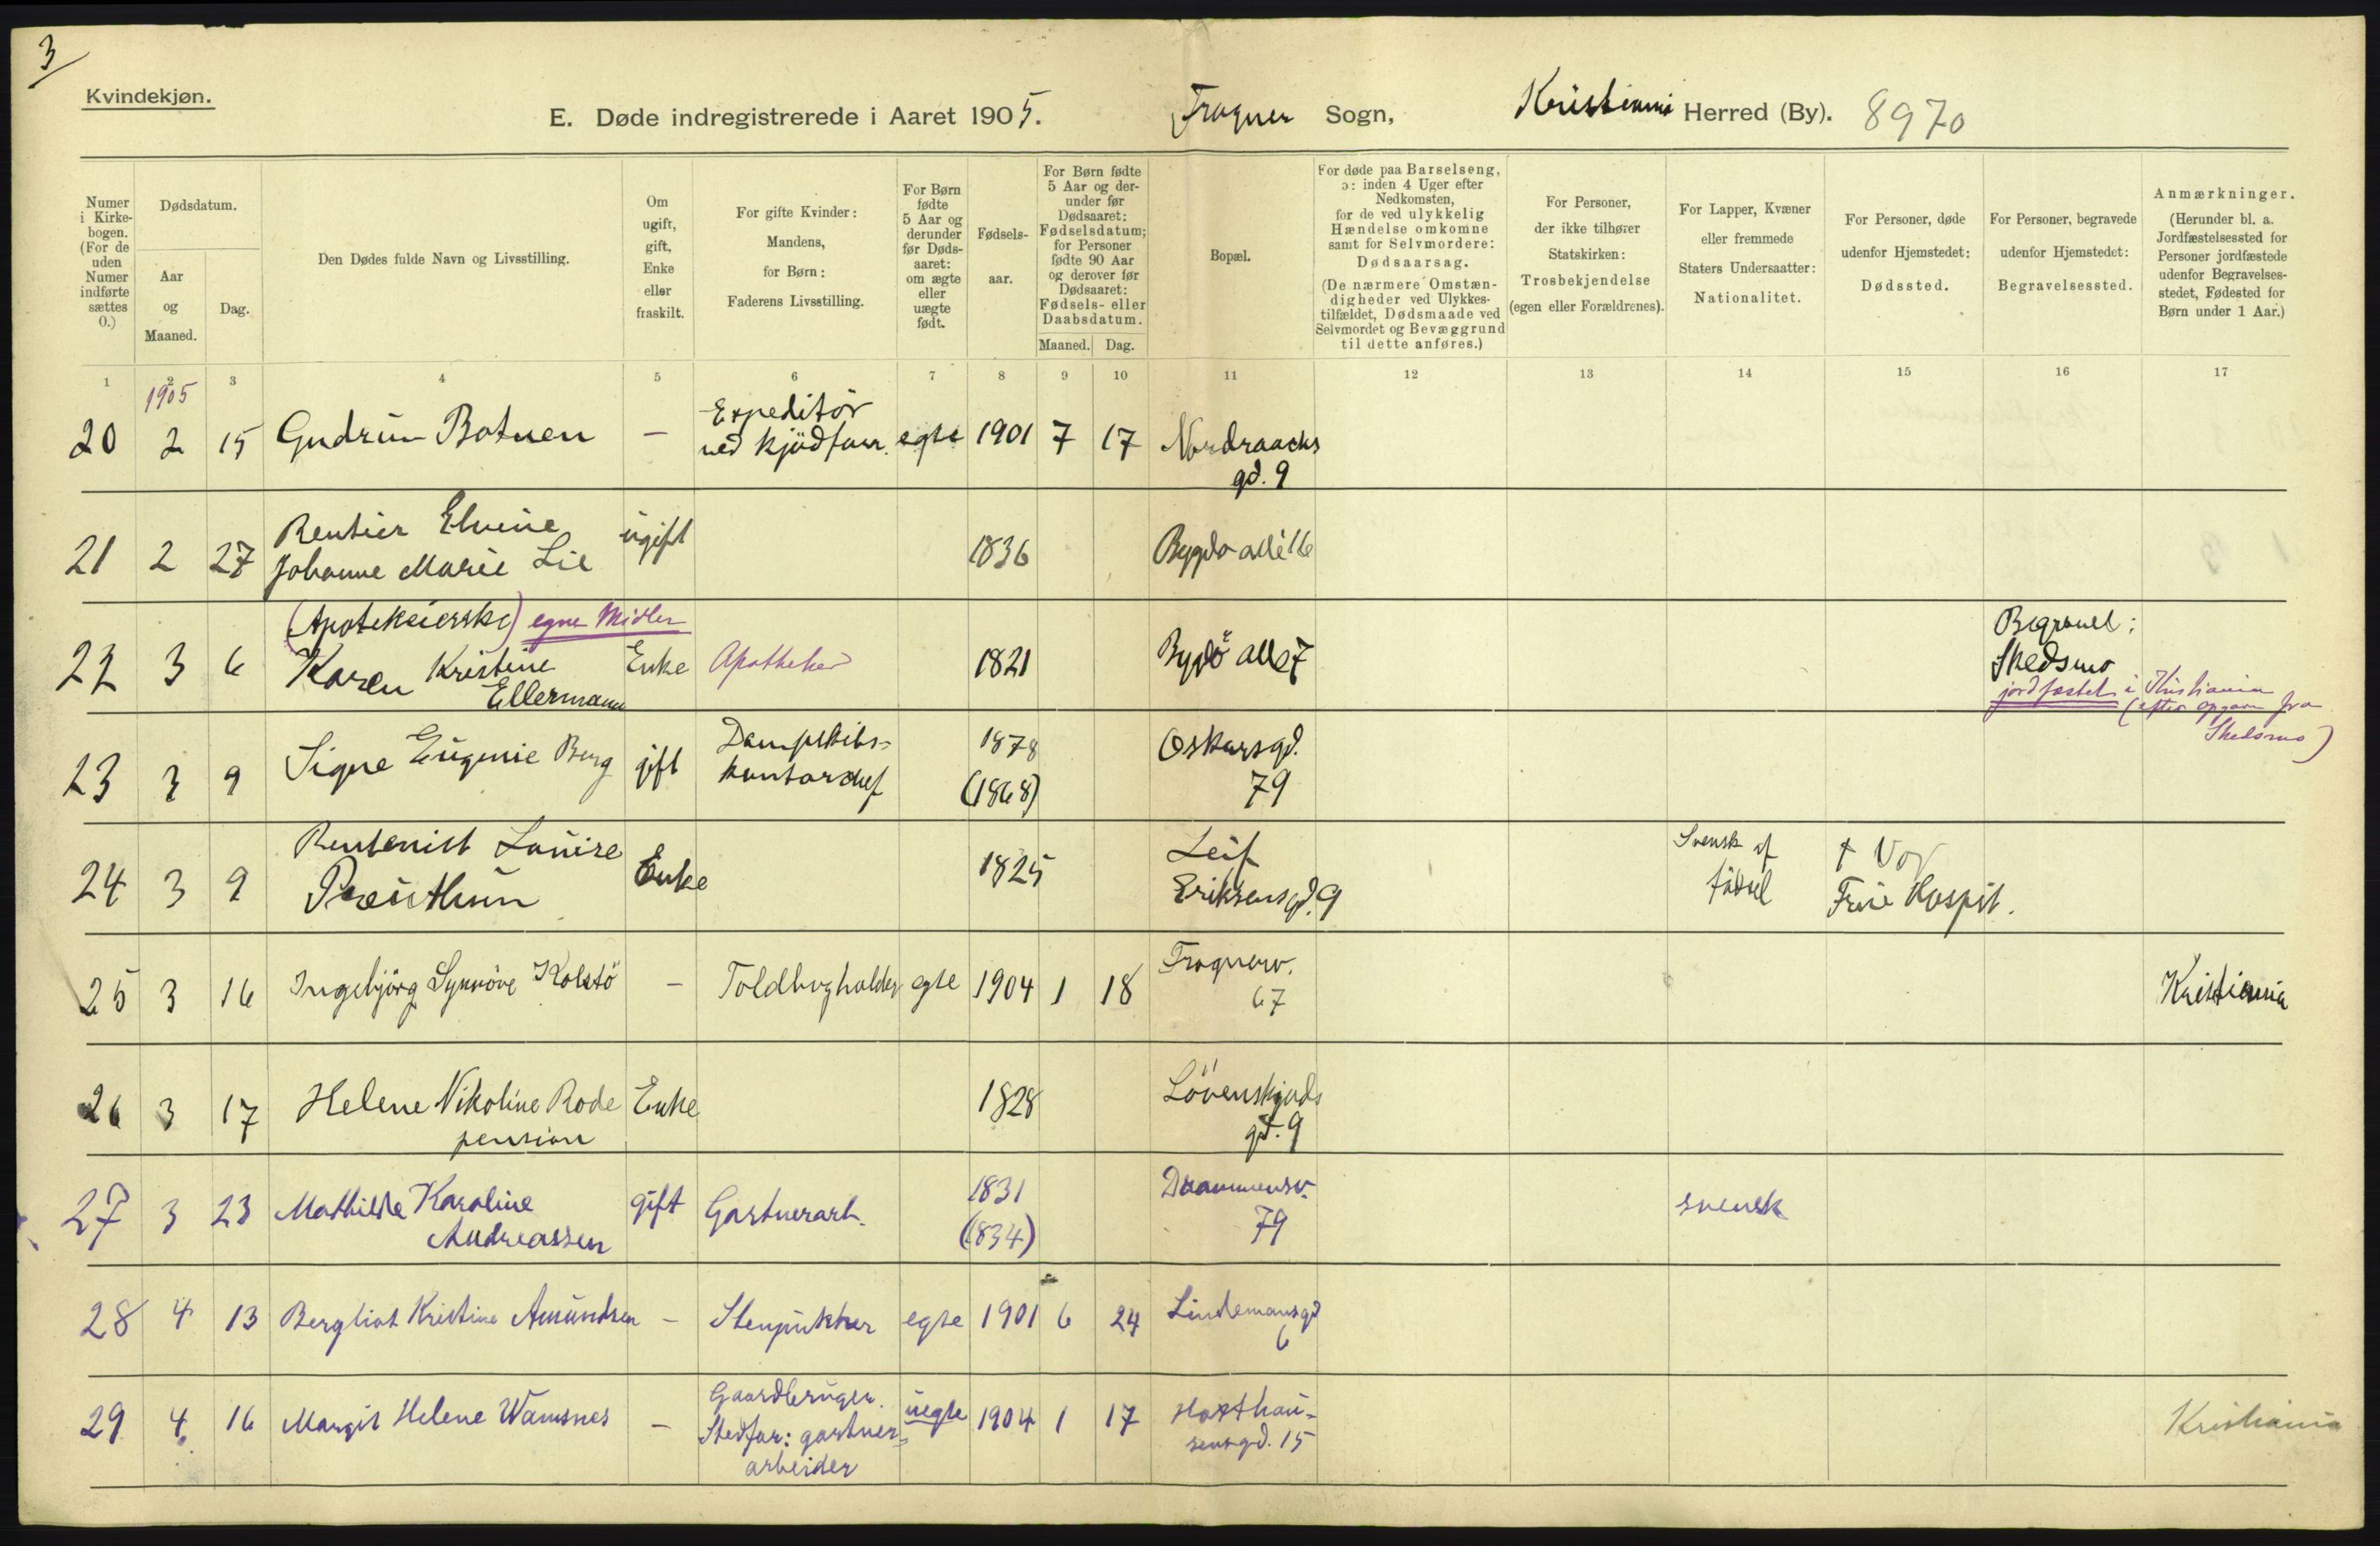 3
Kvindekjøn.
E. Døde indregistrerede i Aaret 1905. Frogner Sogn, Kristiania Herred (By). 8970
Numer
i Kirke-
bogen.
(For de
uden
Numer
indførte
sættes
0.)
Dødsdatum.
Aar
og
Maaned.
Dag.
Den Dødes fulde Navn og Livsstilling.
Om
ugift,
gift,
Enke
eller
fraskilt.
For gifte Kvinder:
Mandens,
for Børn:
Faderens Livsstilling.
For Børn
fødte
5 Aar og
derunder
før Døds-
aaret:
om ægte
eller
uægte
født.
Fødsels-
aar.
For Børn fødte
5 Aar og der-
under før
Dødsaaret:
Fødselsdatum;
for Personer
fødte 90 Aar
og derover før
Dødsaaret:
Fødsels- eller
Daabsdatum.
Maaned. Dag.
Bopæl.
For døde paa Barselseng,
ɔ: inden 4 Uger efter
Nedkomsten,
for de ved ulykkelig
Hændelse omkomne
samt for Selvmordere:
Dødsaarsag.
(De nærmere Omstæn-
digheder ved Ulykkes-
tilfældet, Dødsmaade ved
Selvmordet og Bevæggrund
til dette anføres.)
For Personer,
der ikke tilhører
Statskirken:
Trosbekjendelse
(egen eller Forældrenes).
For Lapper, Kvæner
eller fremmede
Staters Undersaatter:
Nationalitet.
For Personer, døde
udenfor Hjemstedet:
Dødssted.
For Personer, begravede
udenfor Hjemstedet:
Begravelsessted.
Anmærkninger.
(Herunder bl. a.
Jordfæstelsessted for
Personer jordfæstede
udenfor Begravelses-
stedet, Fødested for
Børn under 1 Aar.)
1 2 3 4 5 6 7 8 9 10 11 12 13 14 15 16 17
1905
20 2 15 Gudrun Botnen — Expeditör
ved kjödforr. egte 1901 7 17 Nordraacks
gd. 9
21 2 27 Rentier Elvine
Johanne Marie Lie ugift 1836 Bygdø allé 16
22 3 6 (Apotekerske) egne Midler
Karen Kristine
Ellermann Enke Apotheker 1821 Bygdö alle 7 Begravet:
Skedsmo
jordfæstet i Kristiania
(efter opgave fra
Skedsmo)
23 3 9 Signe Eugenie Berg gift Dampskibs-
kontorchef 1878
(1868) Oskarsgd.
79
24 3 9 Rentenist Louise
Enke 1825 Leif
Eriksens gd. 9 Svensk af
födsel † Vor
Frue Hospit.
25 3 16 Ingebjörg Synnöve Kolstö — Toldbugholder egte 1904 1 18 Frognerv.
67 Kristiania
26 3 17 Helene Nikoline Rode
pension Enke 1828 Lövenskjolds
gd. 9
27 3 23 Mathilde Karoline
Andreassen gift Gartnerarb. 1831
(1834) Drammensv.
79 svensk
28 4 13 Bergliot Kristine Amundsen — Stenpukker egte 1901 6 24 Lindemansgd
6
29 4 16 Margit Helene Wamsnes — Gaardbruger.
Stedfar: gartner=
arbeider uegte 1904 1 17 Holthau=
sensgd. 15 Kristiania